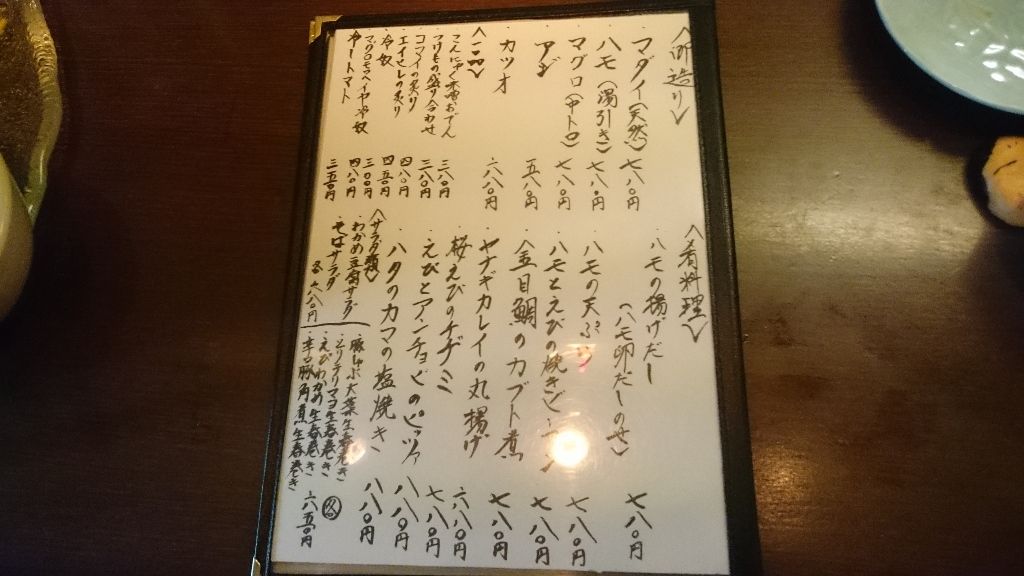 〈御造り〉
・マダイ(天然) 七八〇円
・ハモ(湯引き) 七八〇円
・マグロ(中トロ) 七八〇円
・アジ 五八〇円
・カツオ 六八〇円
〈一品〉
・こんにゃく味噌おでん 三八〇円
・つけもの盛り合わせ 三八〇円
・コマイの炙り 四八〇円
・エイヒレの炙り 四五〇円
・冷奴 三〇〇円
・マグロモヘイヤ冷奴 四八〇円
・冷しトマト 三五〇円
〈肴料理〉
・ハモの揚げだし
(ハモ卵だしのせ) 七八〇円
・ハモの天ぷら 七八〇円
・ハモとえびの焼き 七八〇円
・金目鯛のカブト煮 七八〇円
・ヤナギカレイの丸揚げ 六八〇円
・桜えびのチヂミ 七八〇円
・えびとアンチョビのピッツァ 八八〇円
・ハタのカマの塩焼き 八八〇円
〈サラダ類〉
・わかめ豆腐サラダ
・そばサラダ
各六八〇円
・豚しゃぶ大葉生春巻き
・とりテリマヨ生春巻き
・えびわかめ生春巻き
・辛口豚角煮生春巻き
各 六五〇円